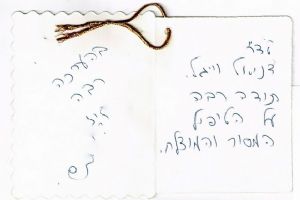 לד"ר
דניאל וייגל.
תודה רבה
על הטיפול
המסור והמוצלח.
בהערכה
רבה